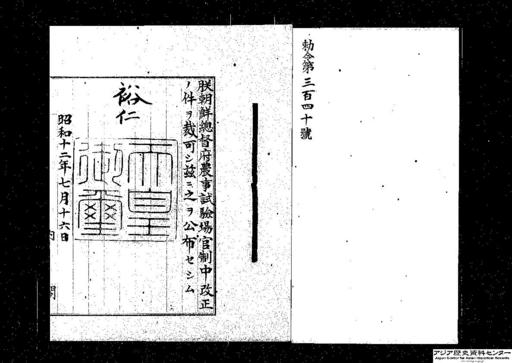 勅令第三百四十號
朕朝鮮總督府農事試驗場官制中改正
ノ件ヲ裁可シ玆ニ之ヲ公布セシム
裕仁
天皇御璽
昭和十二年七月十六日
内閣
アジア歴史資料センター
Japan Center for Asian Historical Records